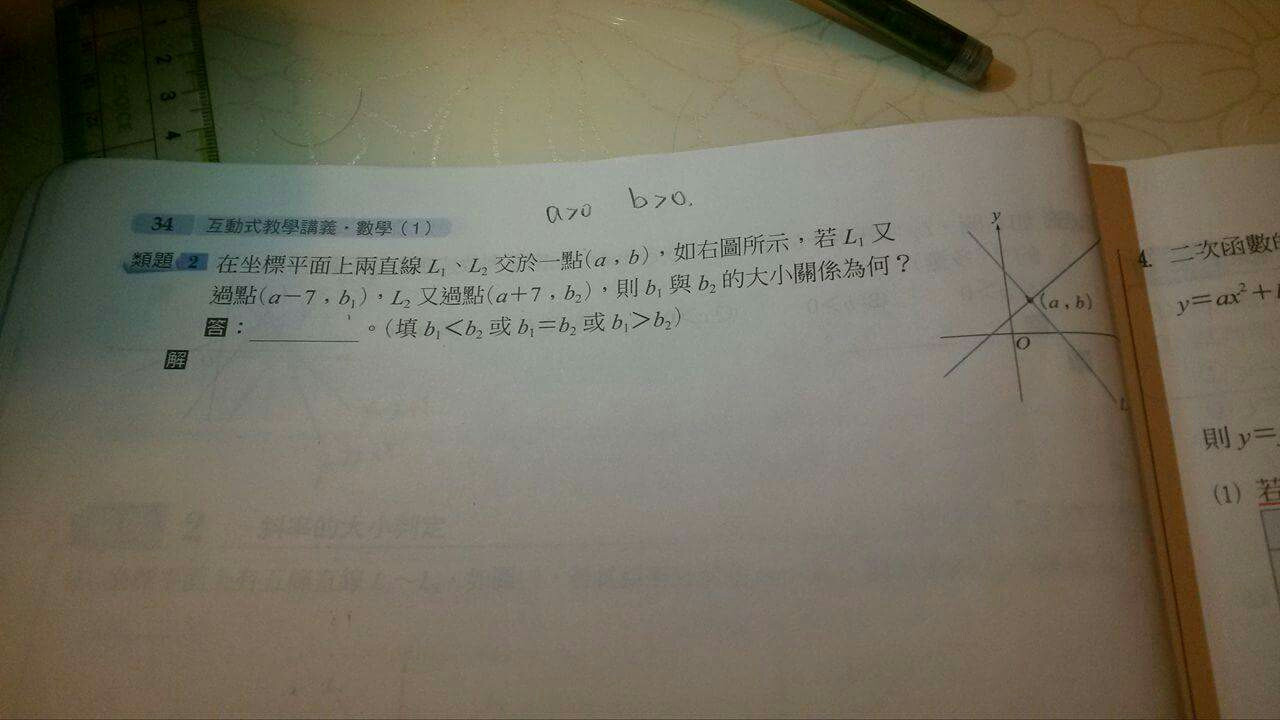 a>0 b>0.
34 互動式教學講義・數學(1)
類題 2 在坐標平面上兩直線 L₁、L₂ 交於一點(a,b),如右圖所示,若 L₁ 又
過點(a-7,b₁),L₂ 又過點(a+7,b₂),則 b₁ 與 b₂ 的大小關係為何?
答:________。(填 b₁<b₂ 或 b₁=b₂ 或 b₁>b₂)
解
y
(a,b)
O
L
2 斜率的大小判定
4. 二次函數
y=ax²+
則 y=
(1) 若
2
3
4